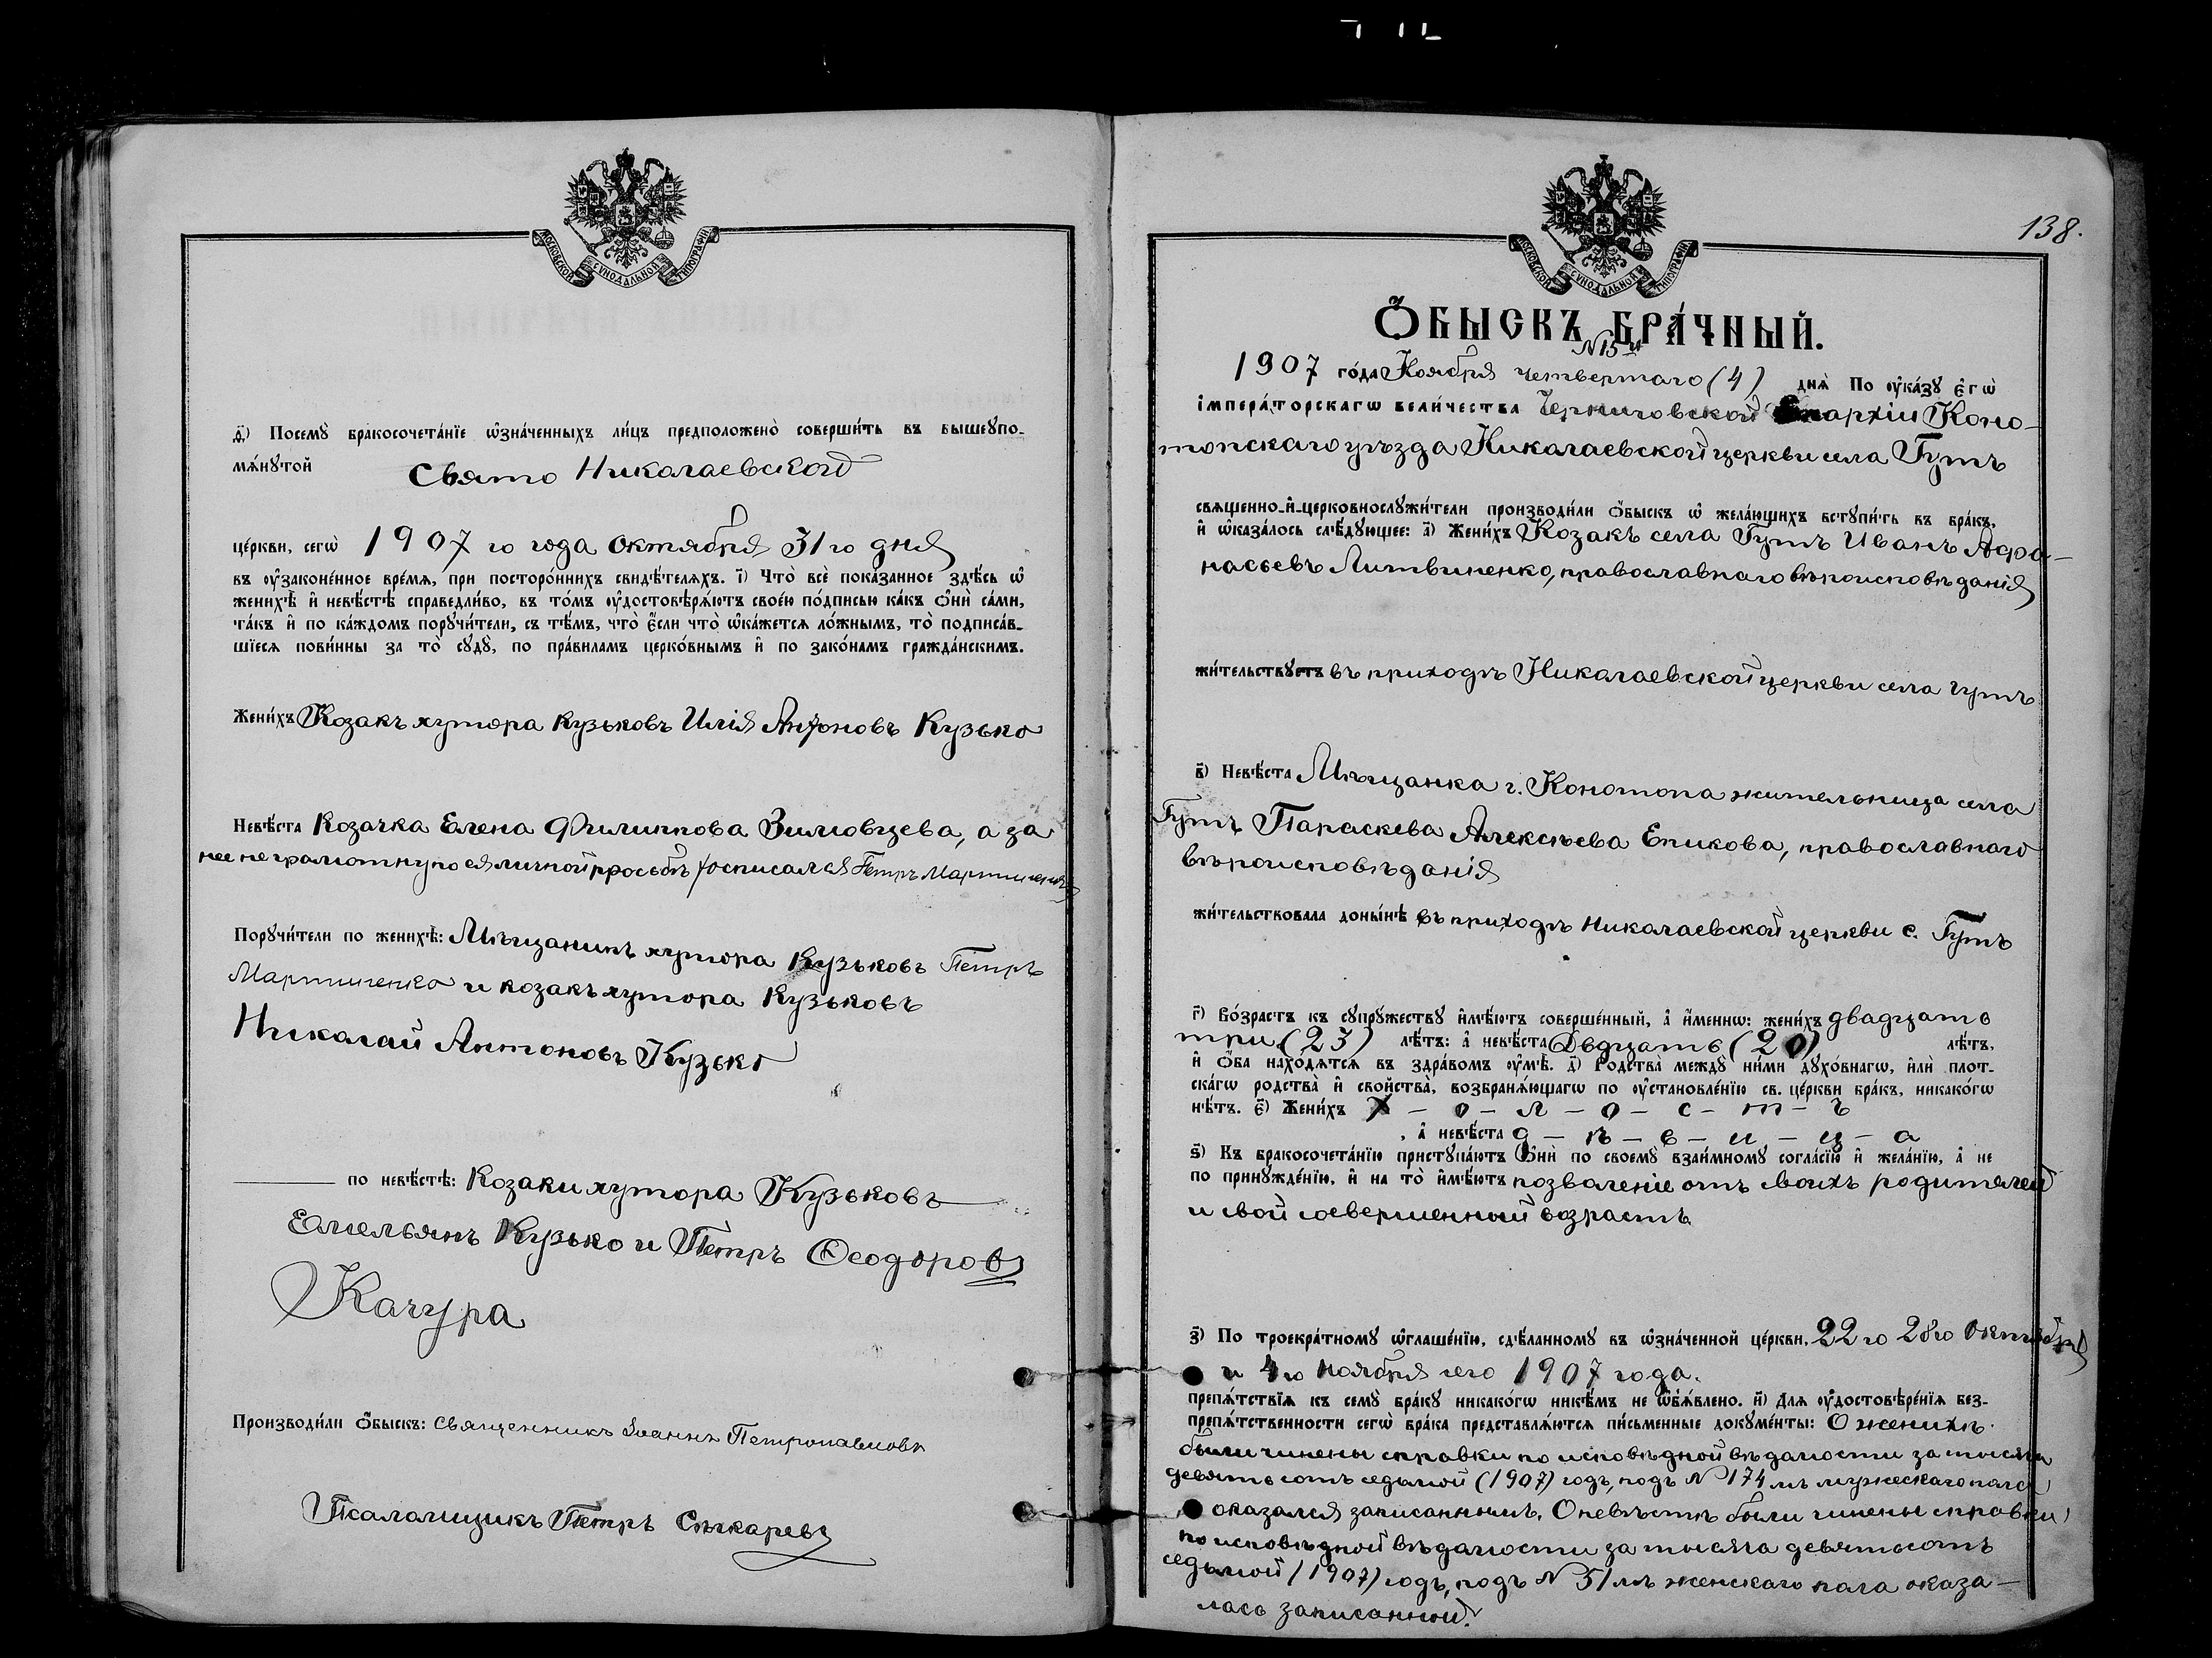 МОСКОВСКОЙ СѴНОДАЛЬНОЙ ТИПОГРАФІИ
ѳ҃) Посемꙋ̀ бракосочета́нїе ѡ҆зна́ченныхъ ли́цъ предположено̀ соверши́ть въ вышеꙋпо-
мѧ́нꙋтой Свято Николаевской
це́ркви, сегѡ̀ 1907 го года октября 31 го дня
въ ᲂу҆законе́нное вре́мѧ, при посторо́ннихъ свидѣ́телѧхъ. і҃) Что̀ всѐ пока́занное здѣ́сь ѡ҆
женихѣ̀ и҆ невѣ́стѣ справедли́во, въ то́мъ ᲂу҆достовѣрѧ́ютъ свое́ю по́дписью ка́къ ѻ҆нѝ са́ми,
та́къ и҆ по ка́ждомъ порꙋчи́тели, съ тѣ́мъ, что̀ є҆́сли что̀ ѡ҆ка́жетсѧ ло́жнымъ, то̀ подписа́в-
шїесѧ пови́нны за то̀ сꙋдꙋ̀, по пра́виламъ церко́внымъ и҆ по зако́намъ гражда́нскимъ.
Жени́хъ Козакъ хутора Кузьковъ Илія Антоновъ Кузько
Невѣ́ста Козачка Елена Филиппова Зимовцева, а за
нее неграмотную по ея личной просьбѣ росписался Петръ Мартиненко
Порꙋчи́тели по женихѣ̀: Мѣщанинъ хутора Кузьковъ Петръ
Мартиненко и козакъ хутора Кузьковъ
Николай Антоновъ Кузько
по невѣ́стѣ: Козаки хутора Кузьковъ
Емельянъ Кузько и Петръ Ѳеодоровъ
Качура
Производи́ли ѻ҆́быскъ: Священникъ Іоаннъ Петропавловъ
Псаломщикъ Петръ Сѣкаревъ
138.
МОСКОВСКОЙ СѴНОДАЛЬНОЙ ТИПОГРАФІИ
Ѻ҆́БЫСКЪ БРА́ЧНЫЙ.
N 15 й
1907 го́да Ноября четвертаго (4) днѧ̀ По ᲂу҆ка́зꙋ є҆гѡ̀
і҆мпера́торскагѡ вели́чества Черниговской Епархіи Коно-
топскаго уѣзда Николаевской церкви села Гутъ
свѧщенно-и҆-церковнослꙋжи́тели производи́ли ѻ҆́быскъ ѡ҆ жела́ющихъ встꙋпи́ть въ бра́къ,
и҆ ѡ҆каза́лось слѣ́дꙋющее: а҃) Жени́хъ Козакъ села Гутъ Иванъ Афа-
насьевъ Литвиненко, православнаго вѣроисповѣданія
жи́тельствꙋетъ въ приходѣ Николаевской церкви села Гутъ
в҃) Невѣ́ста Мѣщанка г. Конотопа жительница села
Гутъ Параскева Алексѣева Епикова, православнаго
вѣроисповѣданія
жи́тельствовала доны́нѣ въ приходѣ Николаевской церкви с. Гутъ
г҃) Во́зрастъ къ сꙋпрꙋ́жествꙋ и҆мѣ́ютъ соверше́нный, а҆ и҆́менно: жени́хъ двадцать
три (23) лѣ́тъ: а҆ невѣ́ста Двдцать (20) лѣ́тъ,
и҆ ѻ҆́ба нахо́дѧтсѧ въ здра́вомъ ᲂу҆мѣ̀. д҃) Родства̀ междꙋ̀ ни́ми дꙋхо́внагѡ, и҆лѝ плот-
ска́гѡ родства̀ и҆ свойства̀, возбранѧ́ющагѡ по ᲂу҆становле́нїю св. це́ркви бра́къ, никако́гѡ
нѣ́тъ. є҃) Жени́хъ Х – о – л – о – с – т – ъ
, а҆ невѣ́ста д – ѣ – в – и – ц – а
ѕ҃) Къ бракосочета́нїю пристꙋпа́ютъ ѻ҆нѝ по своемꙋ̀ взаи́мномꙋ согла́сїю и҆ жела́нїю, а҆ не
по принꙋжде́нїю, и҆ на то̀ и҆мѣ́ютъ позволеніе отъ своихъ родителей
и свой совершенный возрастъ
з҃) По троекра́тномꙋ ѡ҆глаше́нїю, сдѣ́ланномꙋ въ ѡ҆зна́ченной це́ркви, 22 го 28 го Октября
и 4 го Ноября сего 1907 года.
препѧ́тствїѧ къ семꙋ̀ бра́кꙋ никако́гѡ никѣ́мъ не ѡ҆б̾ѧ́влено. и҃) Длѧ ᲂу҆достовѣре́нїѧ без-
препѧ́тственности сегѡ̀ бра́ка представлѧ́ютсѧ пи́сьменные докꙋме́нты: О женихѣ
были чинены справки по исповѣдной вѣдомости за тысяча
девятьсотъ седьмой (1907) годъ, подъ N 174 мъ мужескаго пола
оказался записаннымъ. О невѣстѣ были чинены справки
по исповѣдной вѣдомости за тысяча девятьсотъ
седьмой (1907) годъ, подъ N 51 мъ женскаго пола оказа-
лась записанной.